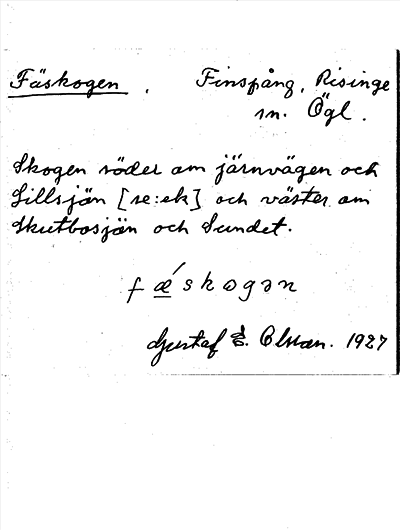 Fäskogen. Finspång, Risinge
sn. Ögl.
Skogen söder om järnvägen och
Lillsjön [se: ek] och väster om
Skutbosjön och Sundet.
fǽskogən
Gustaf Olsson. 1927